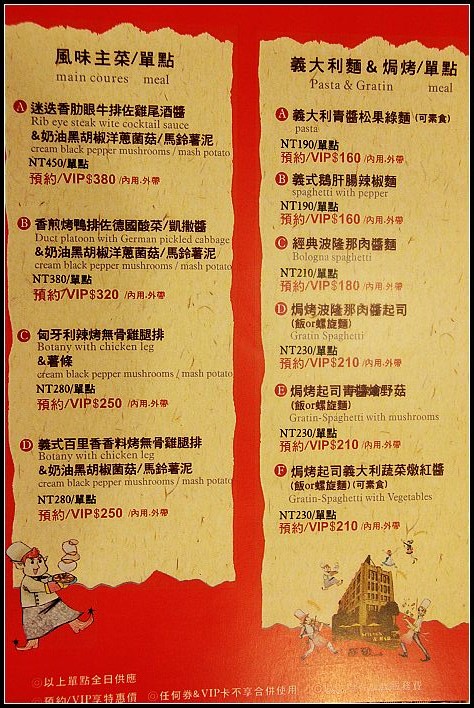 風味主菜/單點
main coures meal
A 迷迭香肋眼牛排佐雞尾酒醬
Rib eye steak wite cocktail sauce
&奶油黑胡椒洋蔥菌菇/馬鈴薯泥
cream black pepper mushrooms / mash potato
NT450/單點
預約/VIP$380 /內用.外帶
B 香煎烤鴨排佐德國酸菜/凱撒醬
Duct platoon with German pickled cabbage
&奶油黑胡椒洋蔥菌菇/馬鈴薯泥
cream black pepper mushrooms / mash potato
NT380/單點
預約/VIP$320 /內用.外帶
C 匈牙利辣烤無骨雞腿排
Botany with chicken leg
&薯條
cream black pepper mushrooms / mash potato
NT280/單點
預約/VIP$250 /內用.外帶
D 義式百里香香料烤無骨雞腿排
Botany with chicken leg
&奶油黑胡椒菌菇/馬鈴薯泥
cream black pepper mushrooms / mash potato
NT280/單點
預約/VIP$250 /內用.外帶
義大利麵 & 焗烤/單點
Pasta & Gratin meal
A 義大利青醬松果綠麵 (可素食)
pasta
NT190/單點
預約/VIP$160 /內用.外帶
B 義式鵝肝腸辣椒麵
spaghetti with pepper
NT190/單點
預約/VIP$160 /內用.外帶
C 經典波隆那肉醬麵
Bologna spaghetti
NT210/單點
預約/VIP$180 /內用.外帶
D 焗烤波隆那肉醬起司
(飯or螺旋麵)
Gratin Spaghetti
NT230/單點
預約/VIP$210 /內用.外帶
E 焗烤起司青醬燴野菇
(飯or螺旋麵)
Gratin-Spaghetti with mushrooms
NT230/單點
預約/VIP$210 /內用.外帶
F 焗烤起司義大利蔬菜燉紅醬
(飯or螺旋麵) (可素食)
Gratin-Spaghetti with Vegetables
NT230/單點
預約/VIP$210 /內用.外帶
◎以上單點全日供應
◎預約/VIP享特惠價 ◎任何券&VIP卡不享合併使用